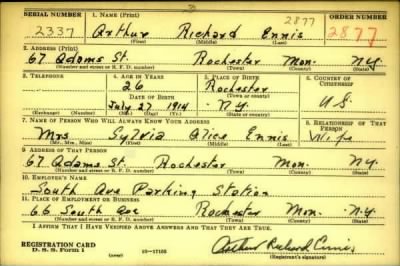 SERIAL NUMBER 1. NAME (Print) ORDER NUMBER
2877
2337 Arthur Richard Ennis 2877
(First) (Middle) (Last)
2. ADDRESS (Print)
67 Adams St. Rochester Mon. N.Y.
(Number and street or R. F. D. number) (Town) (County) (State)
3. TELEPHONE 4. AGE IN YEARS 5. PLACE OF BIRTH 6. COUNTRY OF CITIZENSHIP
26 Rochester
DATE OF BIRTH (Town or county)
July 27 1914 N.Y. U.S.
(Exchange) (Number) (Mo.) (Day) (Yr.) (State or country)
7. NAME OF PERSON WHO WILL ALWAYS KNOW YOUR ADDRESS 8. RELATIONSHIP OF THAT PERSON
Mrs Sylvia Alice Ennis Wife
(Mr., Mrs., Miss) (First) (Middle) (Last)
9. ADDRESS OF THAT PERSON
67 Adams St. Rochester Mon. N.Y.
(Number and street or R. F. D. number) (Town) (County) (State)
10. EMPLOYER'S NAME
South Ave Parking Station
11. PLACE OF EMPLOYMENT OR BUSINESS
66 South Ave Rochester Mon. N.Y.
(Number and street or R. F. D. number) (Town) (County) (State)
I AFFIRM THAT I HAVE VERIFIED ABOVE ANSWERS AND THAT THEY ARE TRUE.
REGISTRATION CARD
D. S. S. Form 1 16—17105 Arthur Richard Ennis
(Registrant's signature)